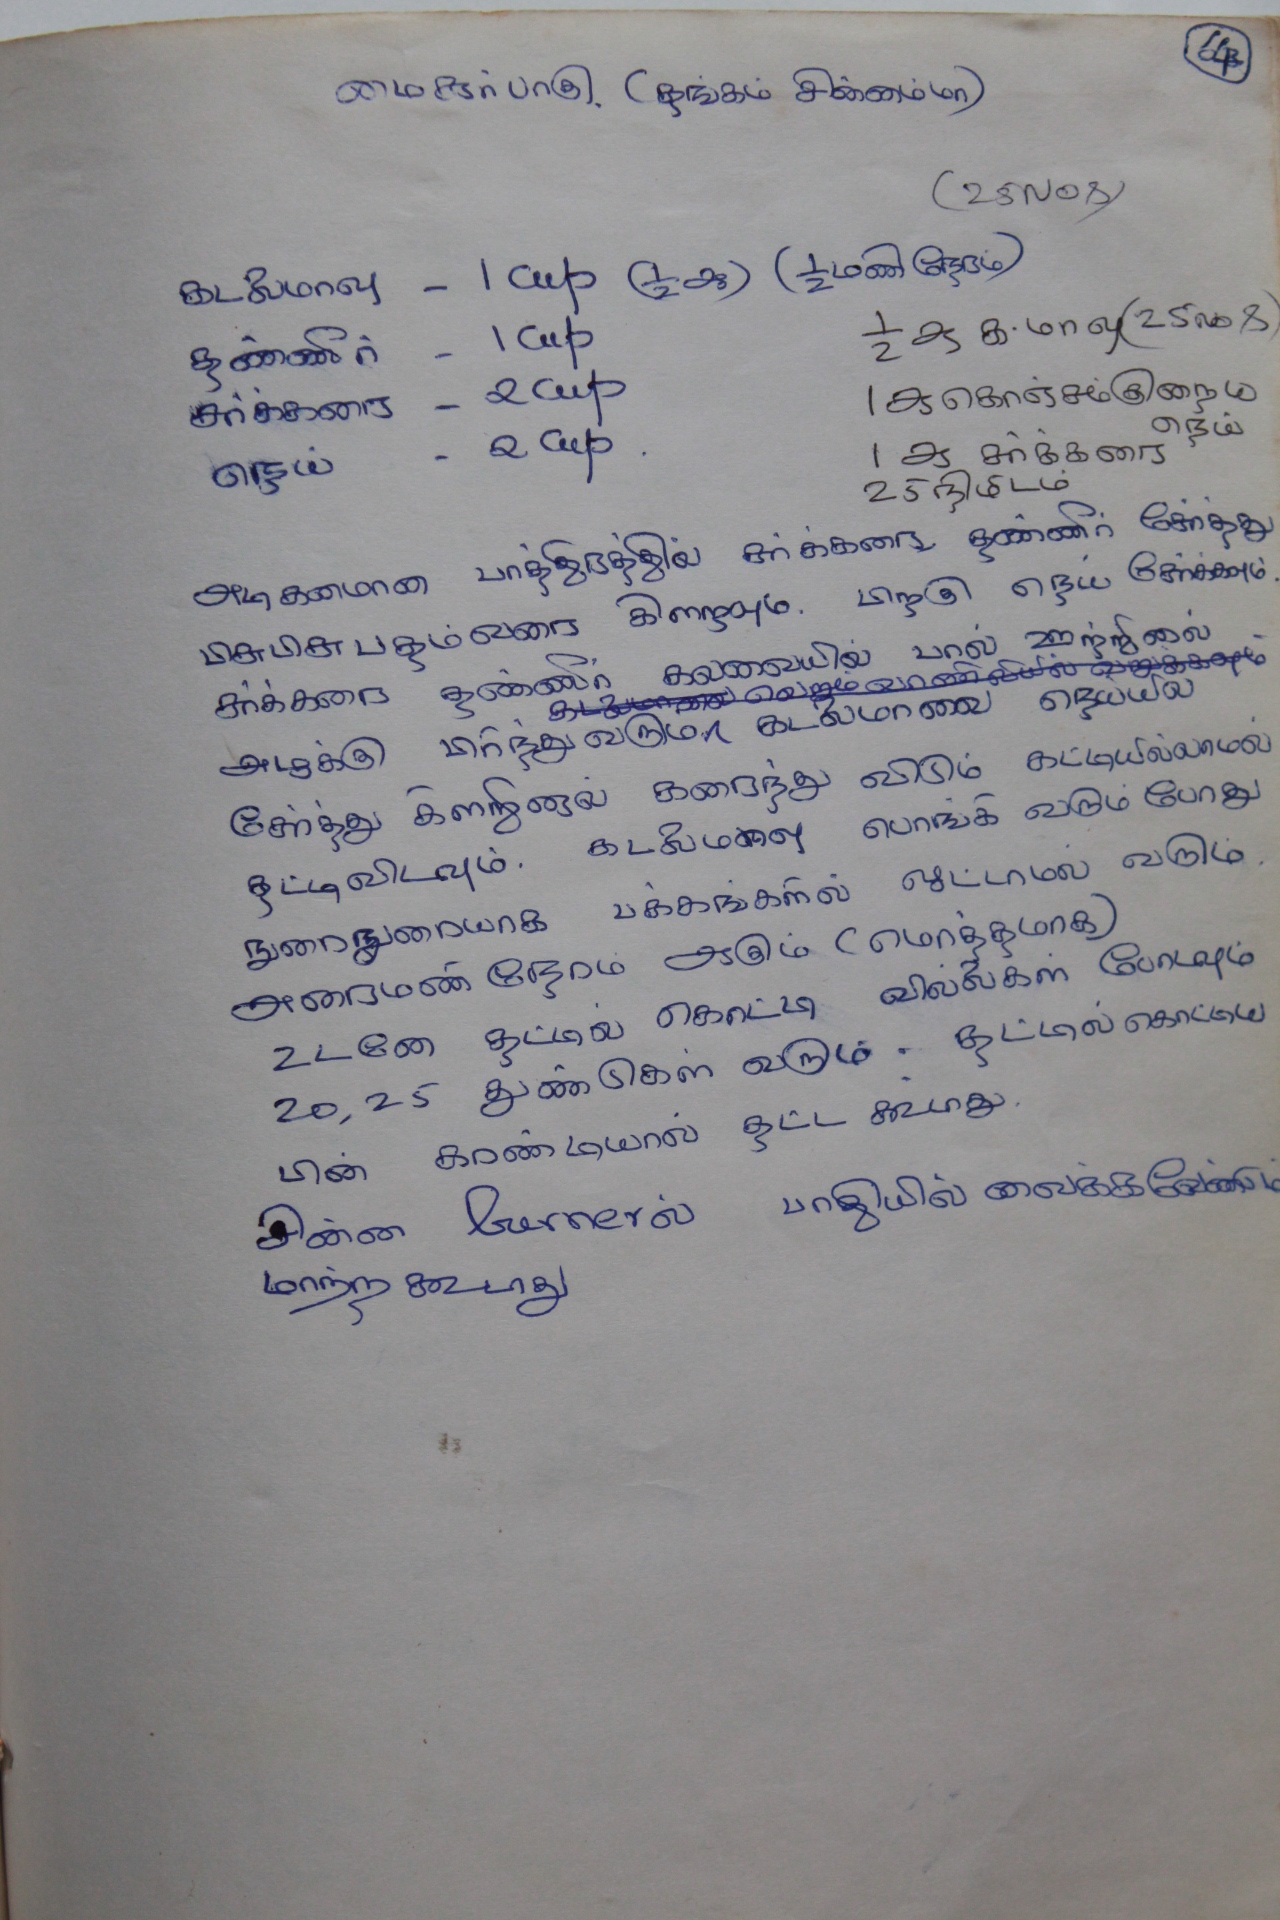 மைசூர்பாகு. (தங்கம் சின்னம்மா)
கடலைமாவு - 1 cup (½ ஆ) (½ மணி நேரம்)
தண்ணீர் - 1 cup
சர்க்கரை - 2 cup
நெய் - 2 cup.
½ ஆ க.மாவு
1 ஆ கொஞ்சம் குறைய நெய்
1 ஆ சர்க்கரை
25 நிமிடம்
அடிகனமான பாத்திரத்தில் சர்க்கரை, தண்ணீர் சேர்த்து
பிசுபிசு பதம் வரை கிளறவும். பிறகு நெய் சேர்க்கவும்.
சர்க்கரை தண்ணீர் கலவையில் பால் ஊற்றினால்
கடலைமாவை வெறும் வாணலியில் வறுக்கவும்
அழுக்கு பிரிந்து வரும். கடலைமாவை நெய்யில்
சேர்த்து கிளறினால் கரைந்து விடும் கட்டியில்லாமல்
தட்டிவிடவும். கடலைமாவு பொங்கி வரும் போது
நுரைநுரையாக பக்கங்களில் ஒட்டாமல் வரும்.
அரைமணி நேரம் ஆகும் (மொத்தமாக)
உடனே தட்டில் கொட்டி வில்லைகள் போடவும்
20, 25 துண்டுகள் வரும். தட்டில் கொட்டிய
பின் கரண்டியால் தட்ட கூடாது.
சின்ன burnerல் பாதியில் வைக்கவேண்டும்
மாற்ற கூடாது